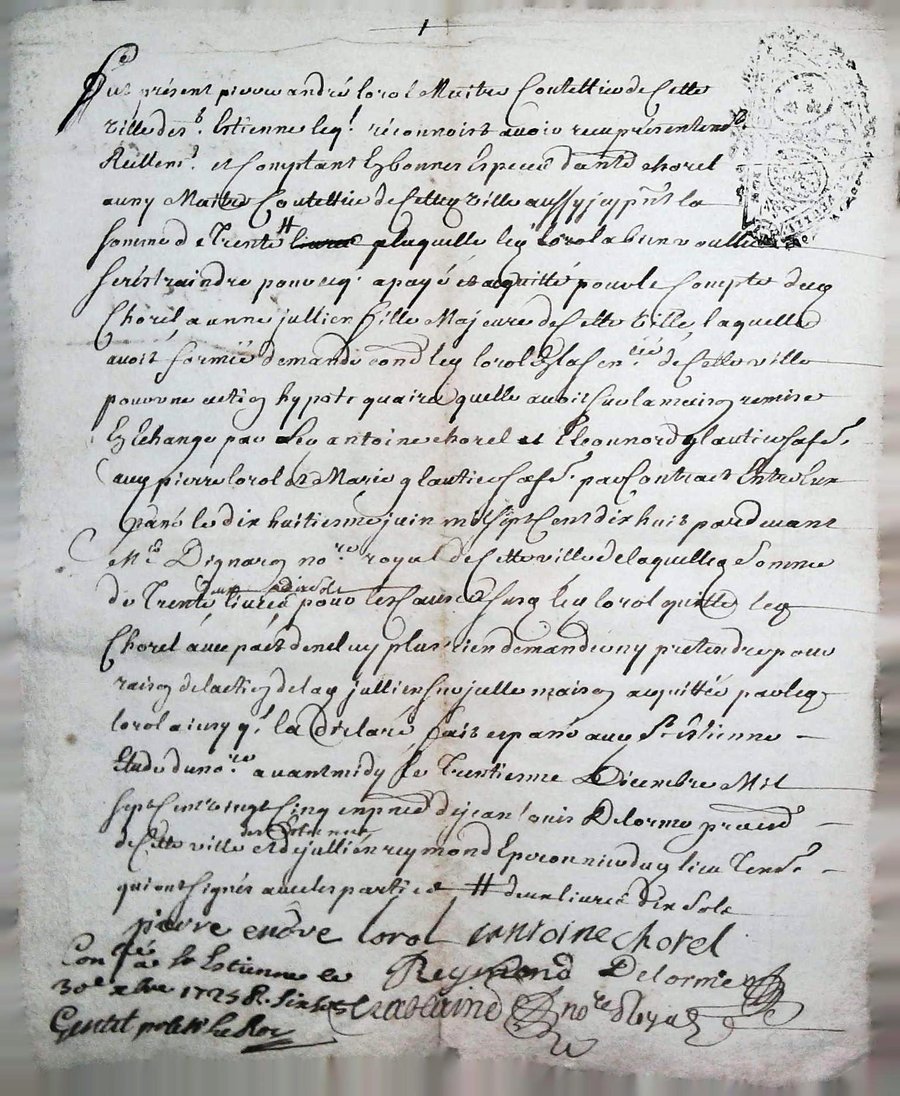 Fut présent pierre andré lorol Maitre Coutellier de Cette
ville de st. Estienne leql. réconnoist avoir reçu présentemt.
Réellemt. et Comptant En bonnes Espece d'antoe chorel
aussy Maitre Coutellier de Cette ville aussy icy pnt la
somme de Trente # par laquelle led lorol a bien voulleu
se réstraindre pour ce q. a payé et acquitté pour le Compte dud
Chorel a anne jullien fille Majeure de Cette ville, laquelle
avoit formée demande contre led lorol En la Senée de Cette ville
pour une action hypotequaire quelle avoit sur la maison remise
En Echange par Led antoine chorel et Eléonnord glautier sa fe.
aud pierre lorol et Marie glautier sa fe. par Contract Entre Eux
passé le dix huitieme juin mil sept Cent dix huit pardevant
Me. Dignaron nore. royal de Cette ville de laquelle Somme
de Trente livres pour les causes susd led lorol quitte led
Chorel avec pact de ne luy plus rien demander ny pretendre pour
raison de laction de lad jullien sur jcelle maison acquittée par led
lorol ainsy q. la déclaré fait et passé aud St. Estienne
Etude du nore. avant midy le Trentieme Décembre Mil
sept Cent vingt Cinq en pnce de jean louis Delorme
de Cette ville et de jullien reymond Eperonnier dud lieu Tems.
qui ont signés avec les parties # d'un livres dix sols
pierre endre lorol antoine chorel
Conlé a St Estienne le Reymond Delorme
30e xbre 1725 R. six sols Chatelaind nore Royal
Gentil